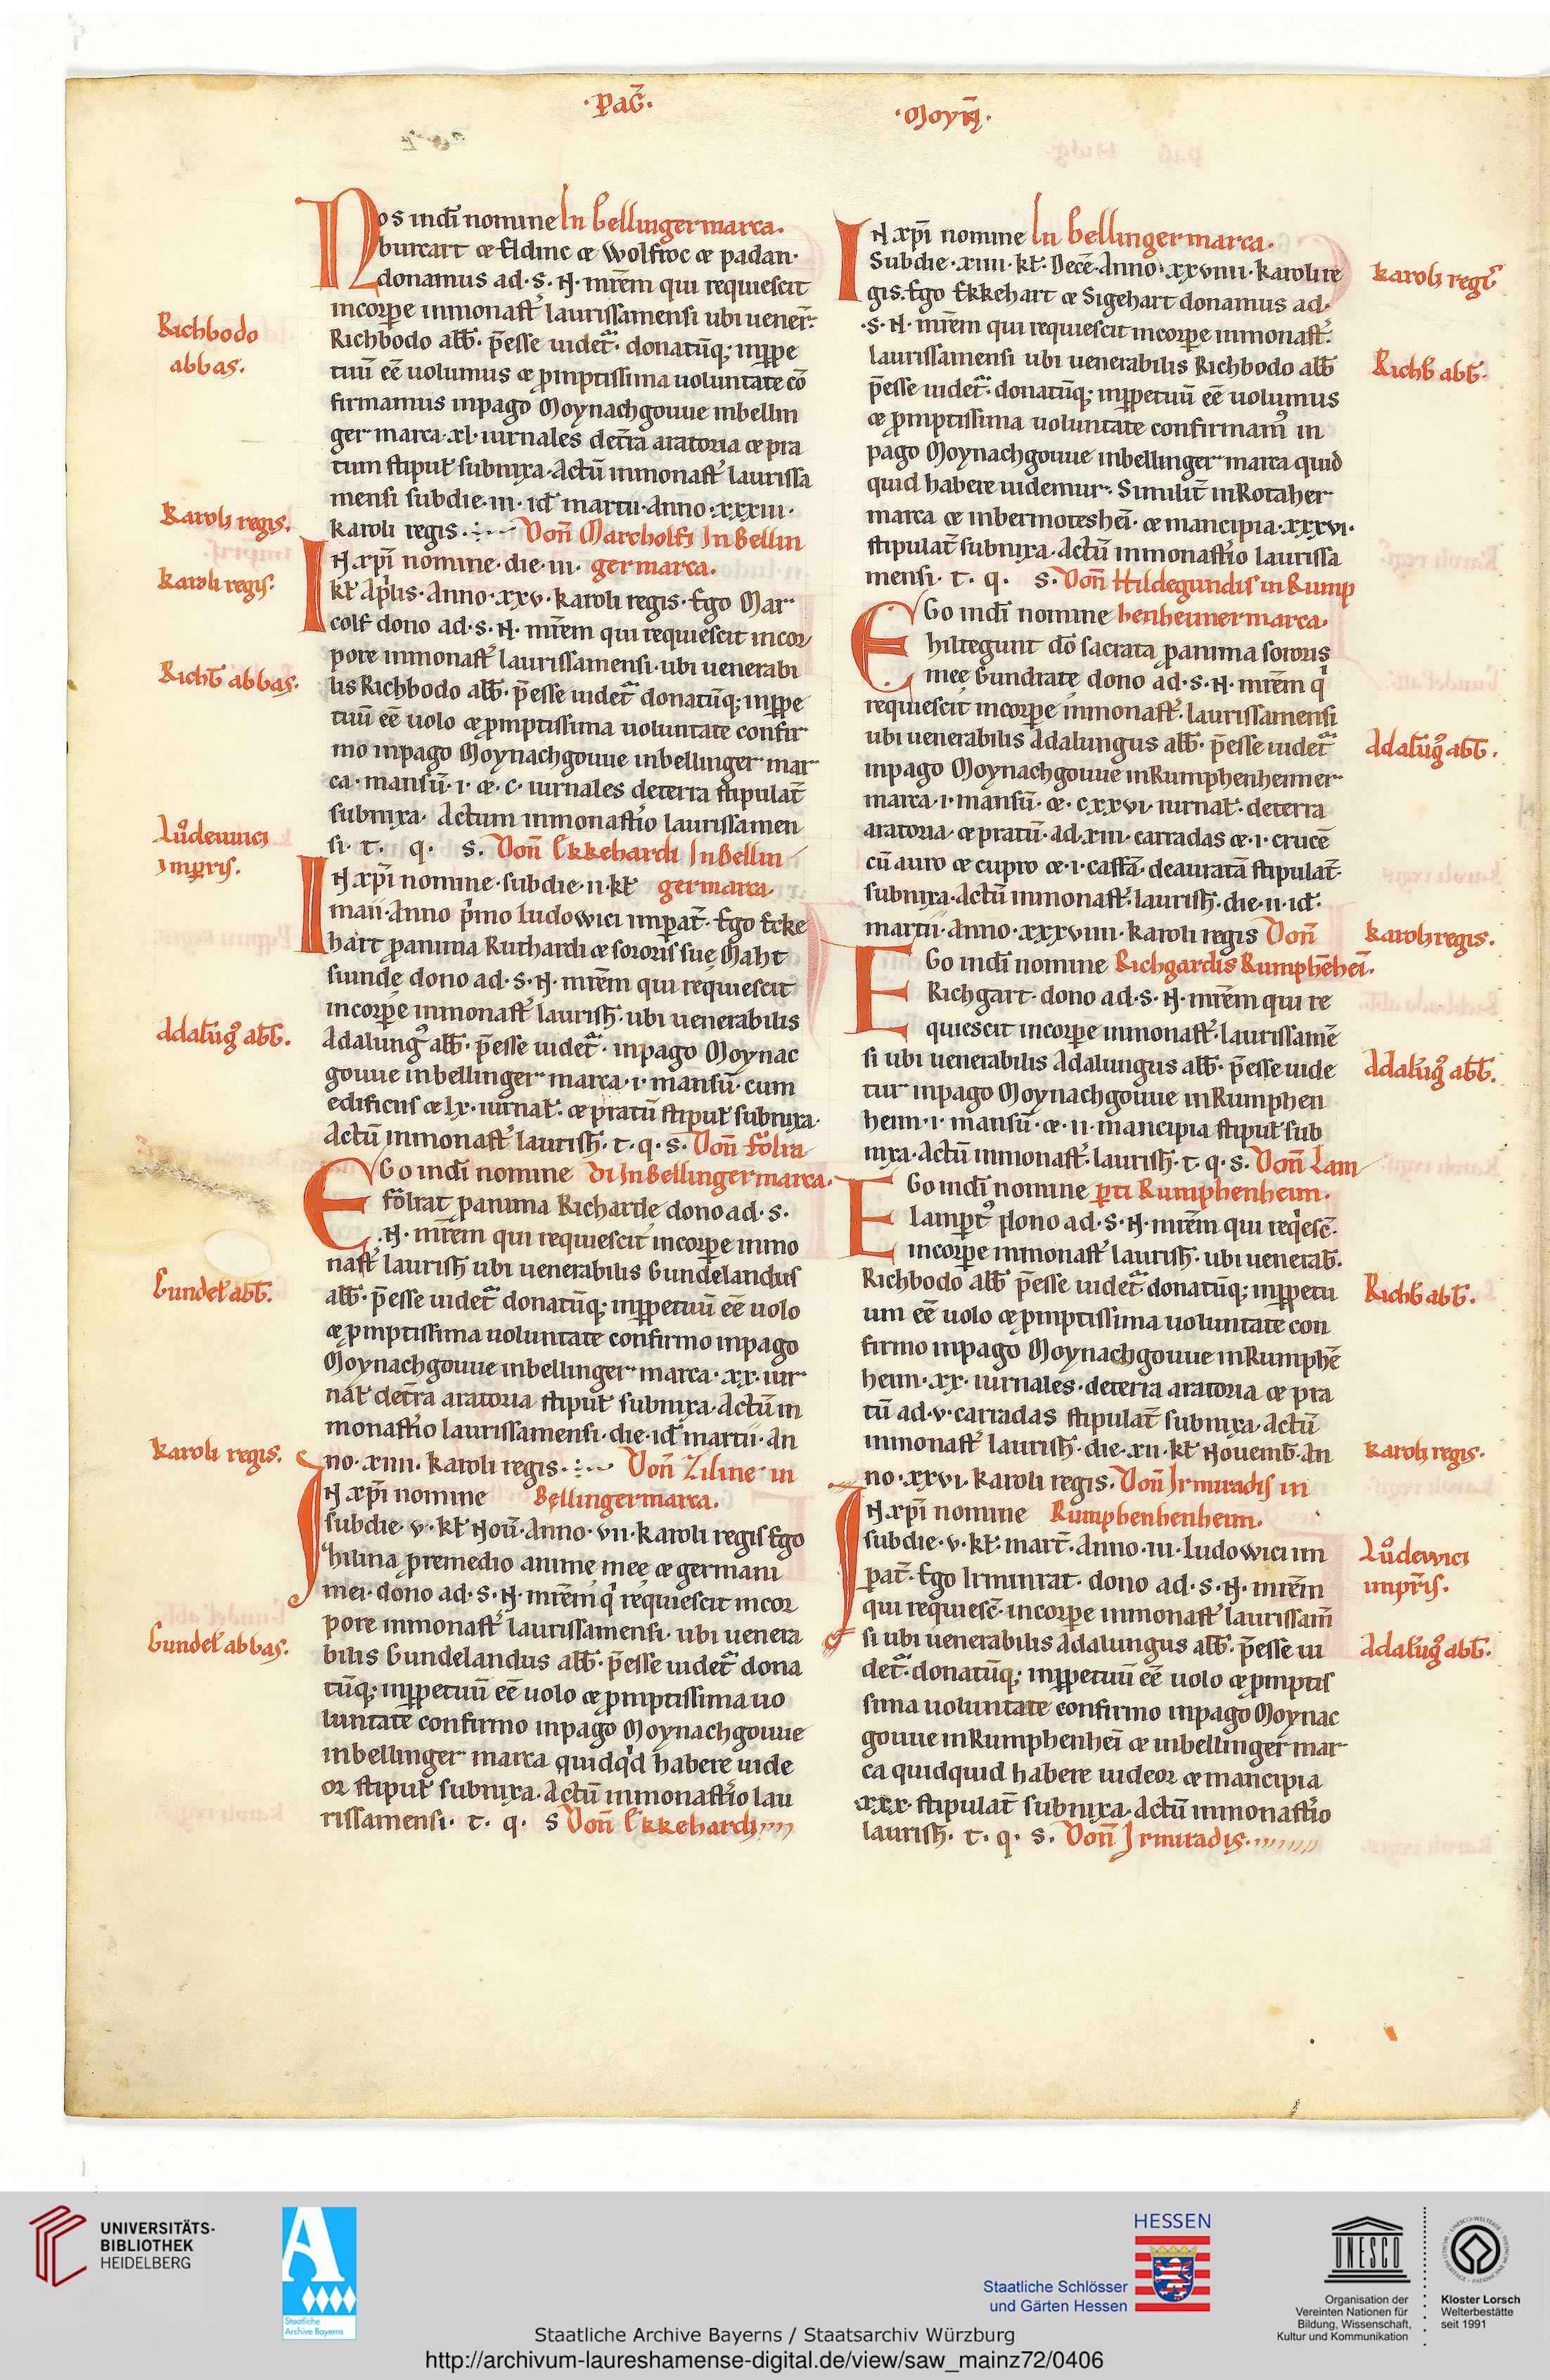 ·Pag̅.
·Moyn̅.
Nos in di̅ nomine In Bellinger marca.
burcart & Eldinc & Wolfroc & padan·
donamus ad·S·N·mr̅em qui requiescit
in corp̱e in monast̕ laurissamensi ubi uener̅·
Richbodo abb̅· p̅esse uidet᷑· donatu̅q; in p̱pe
tuu̅ ee̅ uolumus & p̱mptissima uoluntate co̅
firmamus in pago Moynachgouue in bellin
ger marca·xl·iurnales de t̅ra aratoria & pra
tum stipul̅ subnixa·Actu̅ in monast̕ laurissa
mensi sub die·III·id̕ martii·Anno·xxxIII·
karoli regis·:·~ Don̅ Marcholfi In Bellin
IN xp̅i nomine·die·III· germarca.
kl̅ Ap̕lis·Anno·xxv·karoli regis·Ego Mar
colf dono ad·S·N·mr̅em qui requiescit in cor
pore in monast̕ laurissamensi·ubi uenerabi
lis Richbodo abb̅· p̅esse uidet᷑ donatu̅q; in p̱pe
tuu̅ ee̅ uolo & p̱mptissima uoluntate confir
mo in pago Moynachgouue in bellinger mar
ca·mansu̅·I·&·c·iurnales de terra stipulat̅
subnixa· Actum in monast̕io laurissamen
si· t· q· s. Don̅ Ekkehardi In Bellin
IN xp̅i nomine·sub die·II·kl̅ germarca
maii·Anno p̕mo ludowici imp̱at̅·Ego Ecke
hart p̱ anima Ruthardi & sororis suę Maht
suinde dono ad·S·N·mr̅em qui requiescit
in corp̱e in monast̕ laurish̅·ubi uenerabilis
Adalung᷒ abb̅· p̅esse uidet᷑· in pago Moynac
gouue in bellinger marca·I·mansu̅·cum
edificiis & lx·iurnal̅·& pratu̅ stipul̅ subnixa·
Actu̅ in monast̕ laurish̅·t·q·s· Don̅ Folra
EGo in di̅ nomine di In Bellinger marca.
folrat p̱ anima Richarde dono ad·S·
·N·mr̅em qui requiescit in corp̱e in mo
nast̕ laurish̅ ubi uenerabilis Gundelandus
abb̅· p̅esse uidet᷑ donatu̅q; in p̱petuu̅ ee̅ uolo
& p̱mptissima uoluntate confirmo in pago
Moynachgouue in bellinger marca·xx·iur
nal̅ de t̅ra aratoria stipul̅ subnixa·Actu̅ in
monast̕io laurissamensi·die·id̕ martii·An
no·xIIII·karoli regis·:·~ Don̅ Ziline in
IN xp̅i nomine Bellingermarca.
sub die·v·kl̅ Nou̅·Anno·vII·karoli regis Ego
hilina p̱ remedio anime mee & germani
mei·dono ad·S·N·mr̅em q̕ requiescit in cor
pore in monast̕ laurissamensi·ubi uenera
bilis Gundelandus abb̅· p̅esse uidet᷑ dona
tu̅q; in p̱petuu̅ ee̅ uolo & p̱mptissima uo
luntate confirmo in pago Moynachgouue
in bellinger marca quidq̕d habere uide
or stipul̅ subnixa·Actu̅ in monast̕io lau
rissamensi· t· q· s Don̅ Ekkehardi
Richbodo
abbas.
Karoli regis.
karoli regis.
Richb̅ abbas.
Lůdeuuici
impris.
Adalu̅g᷒ abb̅.
Gundel̅ abb̅.
Karoli regis.
Gundel̅ abbas.
IN xp̅i nomine In Bellinger marca.
Sub die·xIIII·kl̅·Dece̅·Anno·xxvIIII·karoli re
gis·Ego Ekkehart & Sigehart donamus ad·
·S·N·mr̅em qui requiescit in corp̱e in monast̕·
laurissamensi ubi uenerabilis Richbodo abb̅
p̅esse uidet᷑· donatu̅q; in p̱petuu̅ ee̅ uolumus
& p̱mptissima uoluntate confirmam᷒ in
pago Moynachgouue in bellinger marca quid
quid habere uidemur·Similit̕ in Rotaher
marca & in bermoteshei̅·& mancipia·xxxvI·
stipulat̅ subnixa·Actu̅ in monast̕io laurissa
mensi· t· q· s· Don̅ Hildegundis in Rump
EGo in di̅ nomine henheimer marca.
hiltegunt do̅ sacrata p̱ anima sororis
meę Gundrate dono ad·S·N·mr̅em q̕
requiescit in corp̱e in monast̕·laurissamensi
ubi uenerabilis Adalungus abb̅· p̅esse uidet᷑
in pago Moynachgouue in Rumphenheimer
marca·I·mansu̅·&·cxxvI·iurnal̅·de terra
aratoria·& pratu̅·ad·xIII·carradas &·I·cruce̅
cu̅ auro & cupro &·I·cassa̅·deaurata̅ stipulat̅·
subnixa·Actu̅ in monast̕·laurish̅·die·II·id̕·
martii·Anno·xxxvIIII·karoli regis Don̅
EGo in di̅ nomine Richgardis Rumphe̅hei̅.
Richgart·dono ad·S·N·mr̅em qui re
quiescit in corp̱e in monast̕·laurissame̅
si ubi uenerabilis Adalungus abb̅· p̅esse uide
tur in pago Moynachgouue in Rumphen
heim·I·mansu̅·&·II·mancipia stipul̅ sub
nixa·Actu̅ in monast̕·laurish̅·t·q·s· Don̅ Lam
EGo in di̅ nomine p̱ti Rumphenheim.
Lamp̱t᷒ dono ad·S·N·mr̅em qui req̕esc̅·
in corp̱e in monast̕ laurish̅·ubi uenerab̅·
Richbodo abb̅ p̅esse uidet᷑ donatu̅q; in p̱petu
um ee̅ uolo & p̱mptissima uoluntate con
firmo in pago Moynachgouue in Rumphe̅
heim·xx·iurnales·de terra aratoria & pra
tu̅ ad·v·carradas stipulat̅ subnixa·Actu̅
in monast̕ laurish̅·die·xII·kl̅ Nouemb̅·An
no·xxvI·karoli regis. Don̅ Irmiradis in
IN xp̅i nomine Rumphenhenheim.
sub die·v·kl̅·mart̅·Anno·III·ludowici im
p̱at̅·Ego Irminrat·dono ad·S·N·mr̅em
qui requiesc̅·in corp̱e in monast̕ laurissam̅
si ubi uenerabilis Adalungus abb̅· p̅esse ui
det᷑·donatu̅q; in p̱petuu̅ ee̅ uolo & p̱mptis
sima uoluntate confirmo in pago Moynac
gouue in Rumphenhei̅ & in bellinger mar
ca quidquid habere uideor & mancipia
xxx·stipulat̅ subnixa·Actu̅ in monast̕io
laurish̅· t· q· s· Don̅ Irmiradis.
Karoli reg̅
Richb̅ abb̅·
Adalu̅g᷒ abb̅.
karoli regis.
Adalu̅g᷒ abb̅.
Richb̅ abb̅.
Karoli regis.
Lůdewici
impr̅is.
Adalu̅g᷒ abb̅.
UNIVERSITÄTS-
BIBLIOTHEK
HEIDELBERG
Staatliche
Archive Bayerns
HESSEN
Staatliche Schlösser
und Gärten Hessen
UNESCO
Organisation der
Vereinten Nationen für
Bildung, Wissenschaft,
Kultur und Kommunikation
Kloster Lorsch
Welterbestätte
seit 1991
Staatliche Archive Bayerns / Staatsarchiv Würzburg
http://archivum-laureshamense-digital.de/view/saw_mainz72/0406